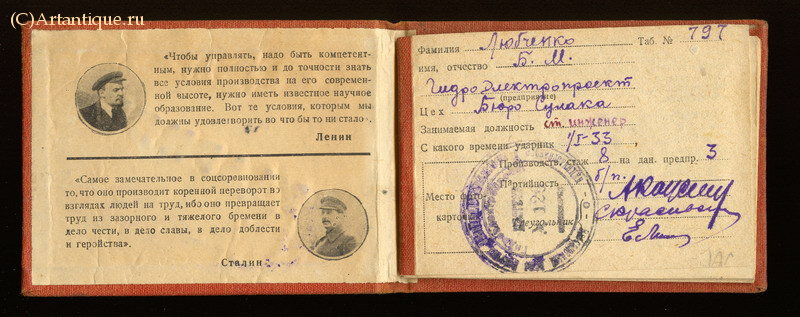 (C)Artantique.ru
«Чтобы управлять, надо быть компетент-
ным, нужно полностью и до точности знать
все условия производства на его современ-
ной высоте, нужно иметь известное научное
образование. Вот те условия, которым мы
должны удовлетворить во что бы то ни стало».
Ленин
«Самое замечательное в соцсоревновании
то, что оно производит коренной переворот во
взглядах людей на труд, ибо оно превращает
труд из зазорного и тяжелого бремени в
дело чести, в дело славы, в дело доблести
и геройства».
Сталин
Фамилия Любченко Таб. № 797
имя, отчество Б. М.
Гидроэлектропроект
(предприятие)
Цех Бюро Сулака
Занимаемая должность ст. инженер
С какого времени ударник 1/I-33
Производств. стаж 8 на дан. предпр. 3
Партийность б/п.
Место
карточ